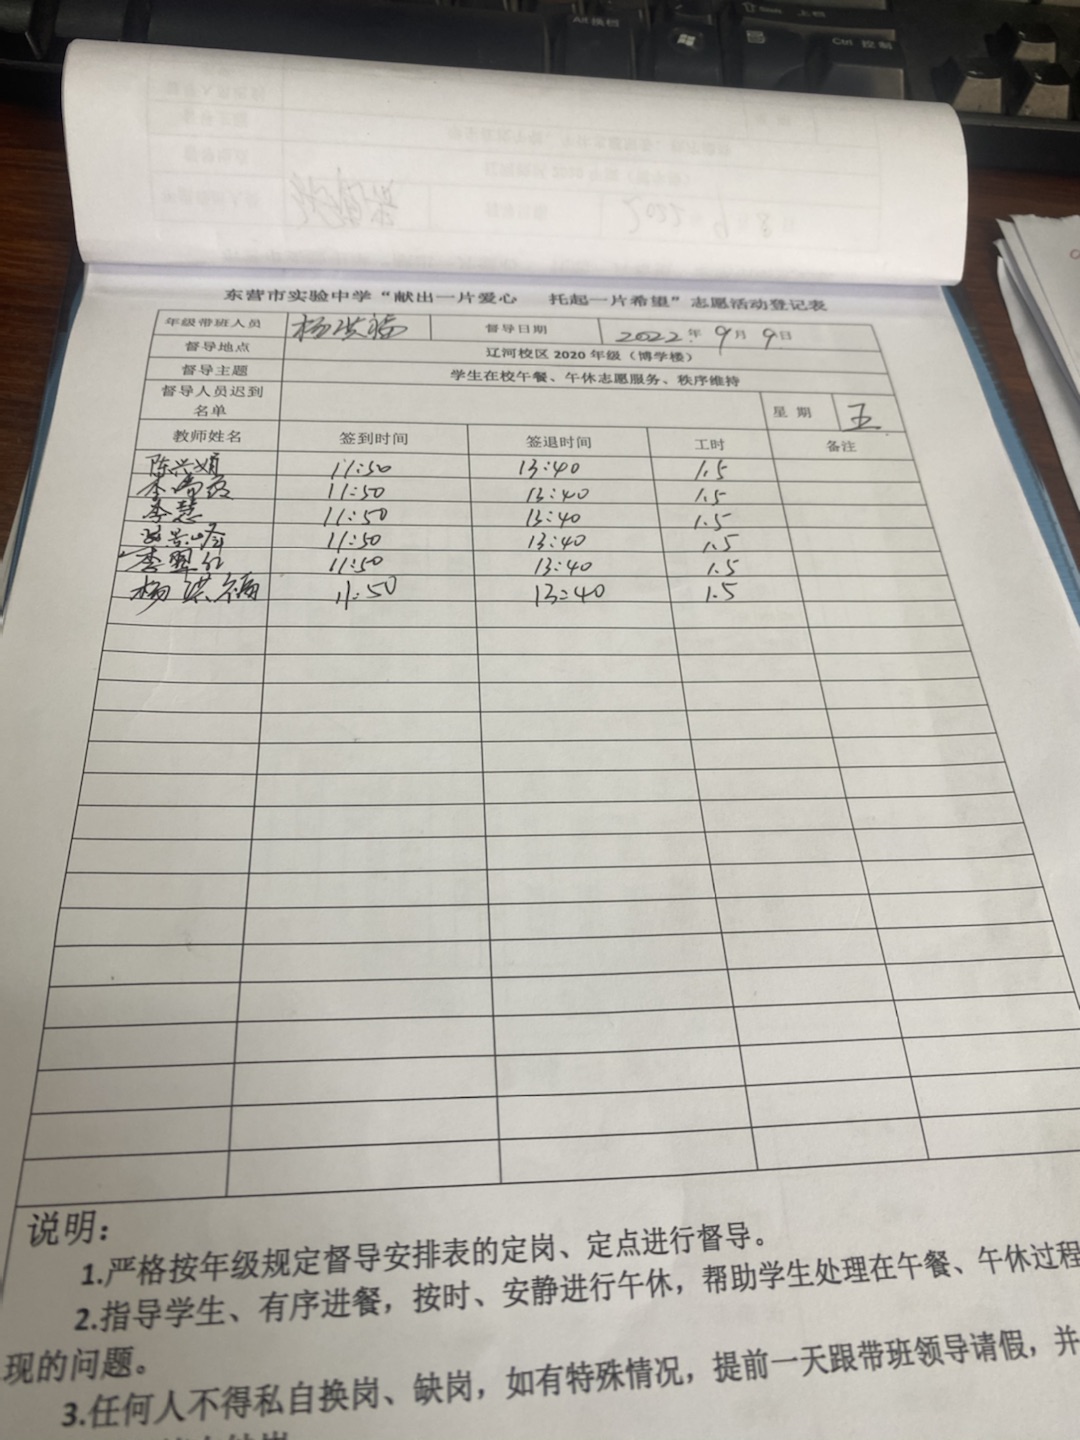 Alt 换档
⇧Shift 上档
Ctrl 控制
东营市实验中学“献出一片爱心 托起一片希望”志愿活动登记表
年级带班人员 杨洪福 督导日期 2022年9月9日
督导地点 辽河校区 2020 年级（博学楼）
督导主题 学生在校午餐、午休志愿服务、秩序维持
督导人员迟到名单 星期 五
教师姓名 签到时间 签退时间 工时 备注
陈兴娟 11:50 13:40 1.5
李 11:50 13:40 1.5
李慧 11:50 13:40 1.5
峰 11:50 13:40 1.5
李翠红 11:50 13:40 1.5
杨洪福 11:50 13:40 1.5
说明：
1.严格按年级规定督导安排表的定岗、定点进行督导。
2.指导学生、有序进餐，按时、安静进行午休，帮助学生处理在午餐、午休过程
现的问题。
3.任何人不得私自换岗、缺岗，如有特殊情况，提前一天跟带班领导请假，并